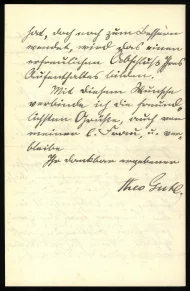 hat, doch noch zum Bessern
wendet, wird das einen
erfreulichen Abschluß Ihres
Aufenthaltes bilden.
Mit diesem Wunsche
verbinde ich die freund-
lichsten Grüße, auch von
meiner l. Frau, u. ver-
bleibe
Ihr dankbar ergebener
Theo